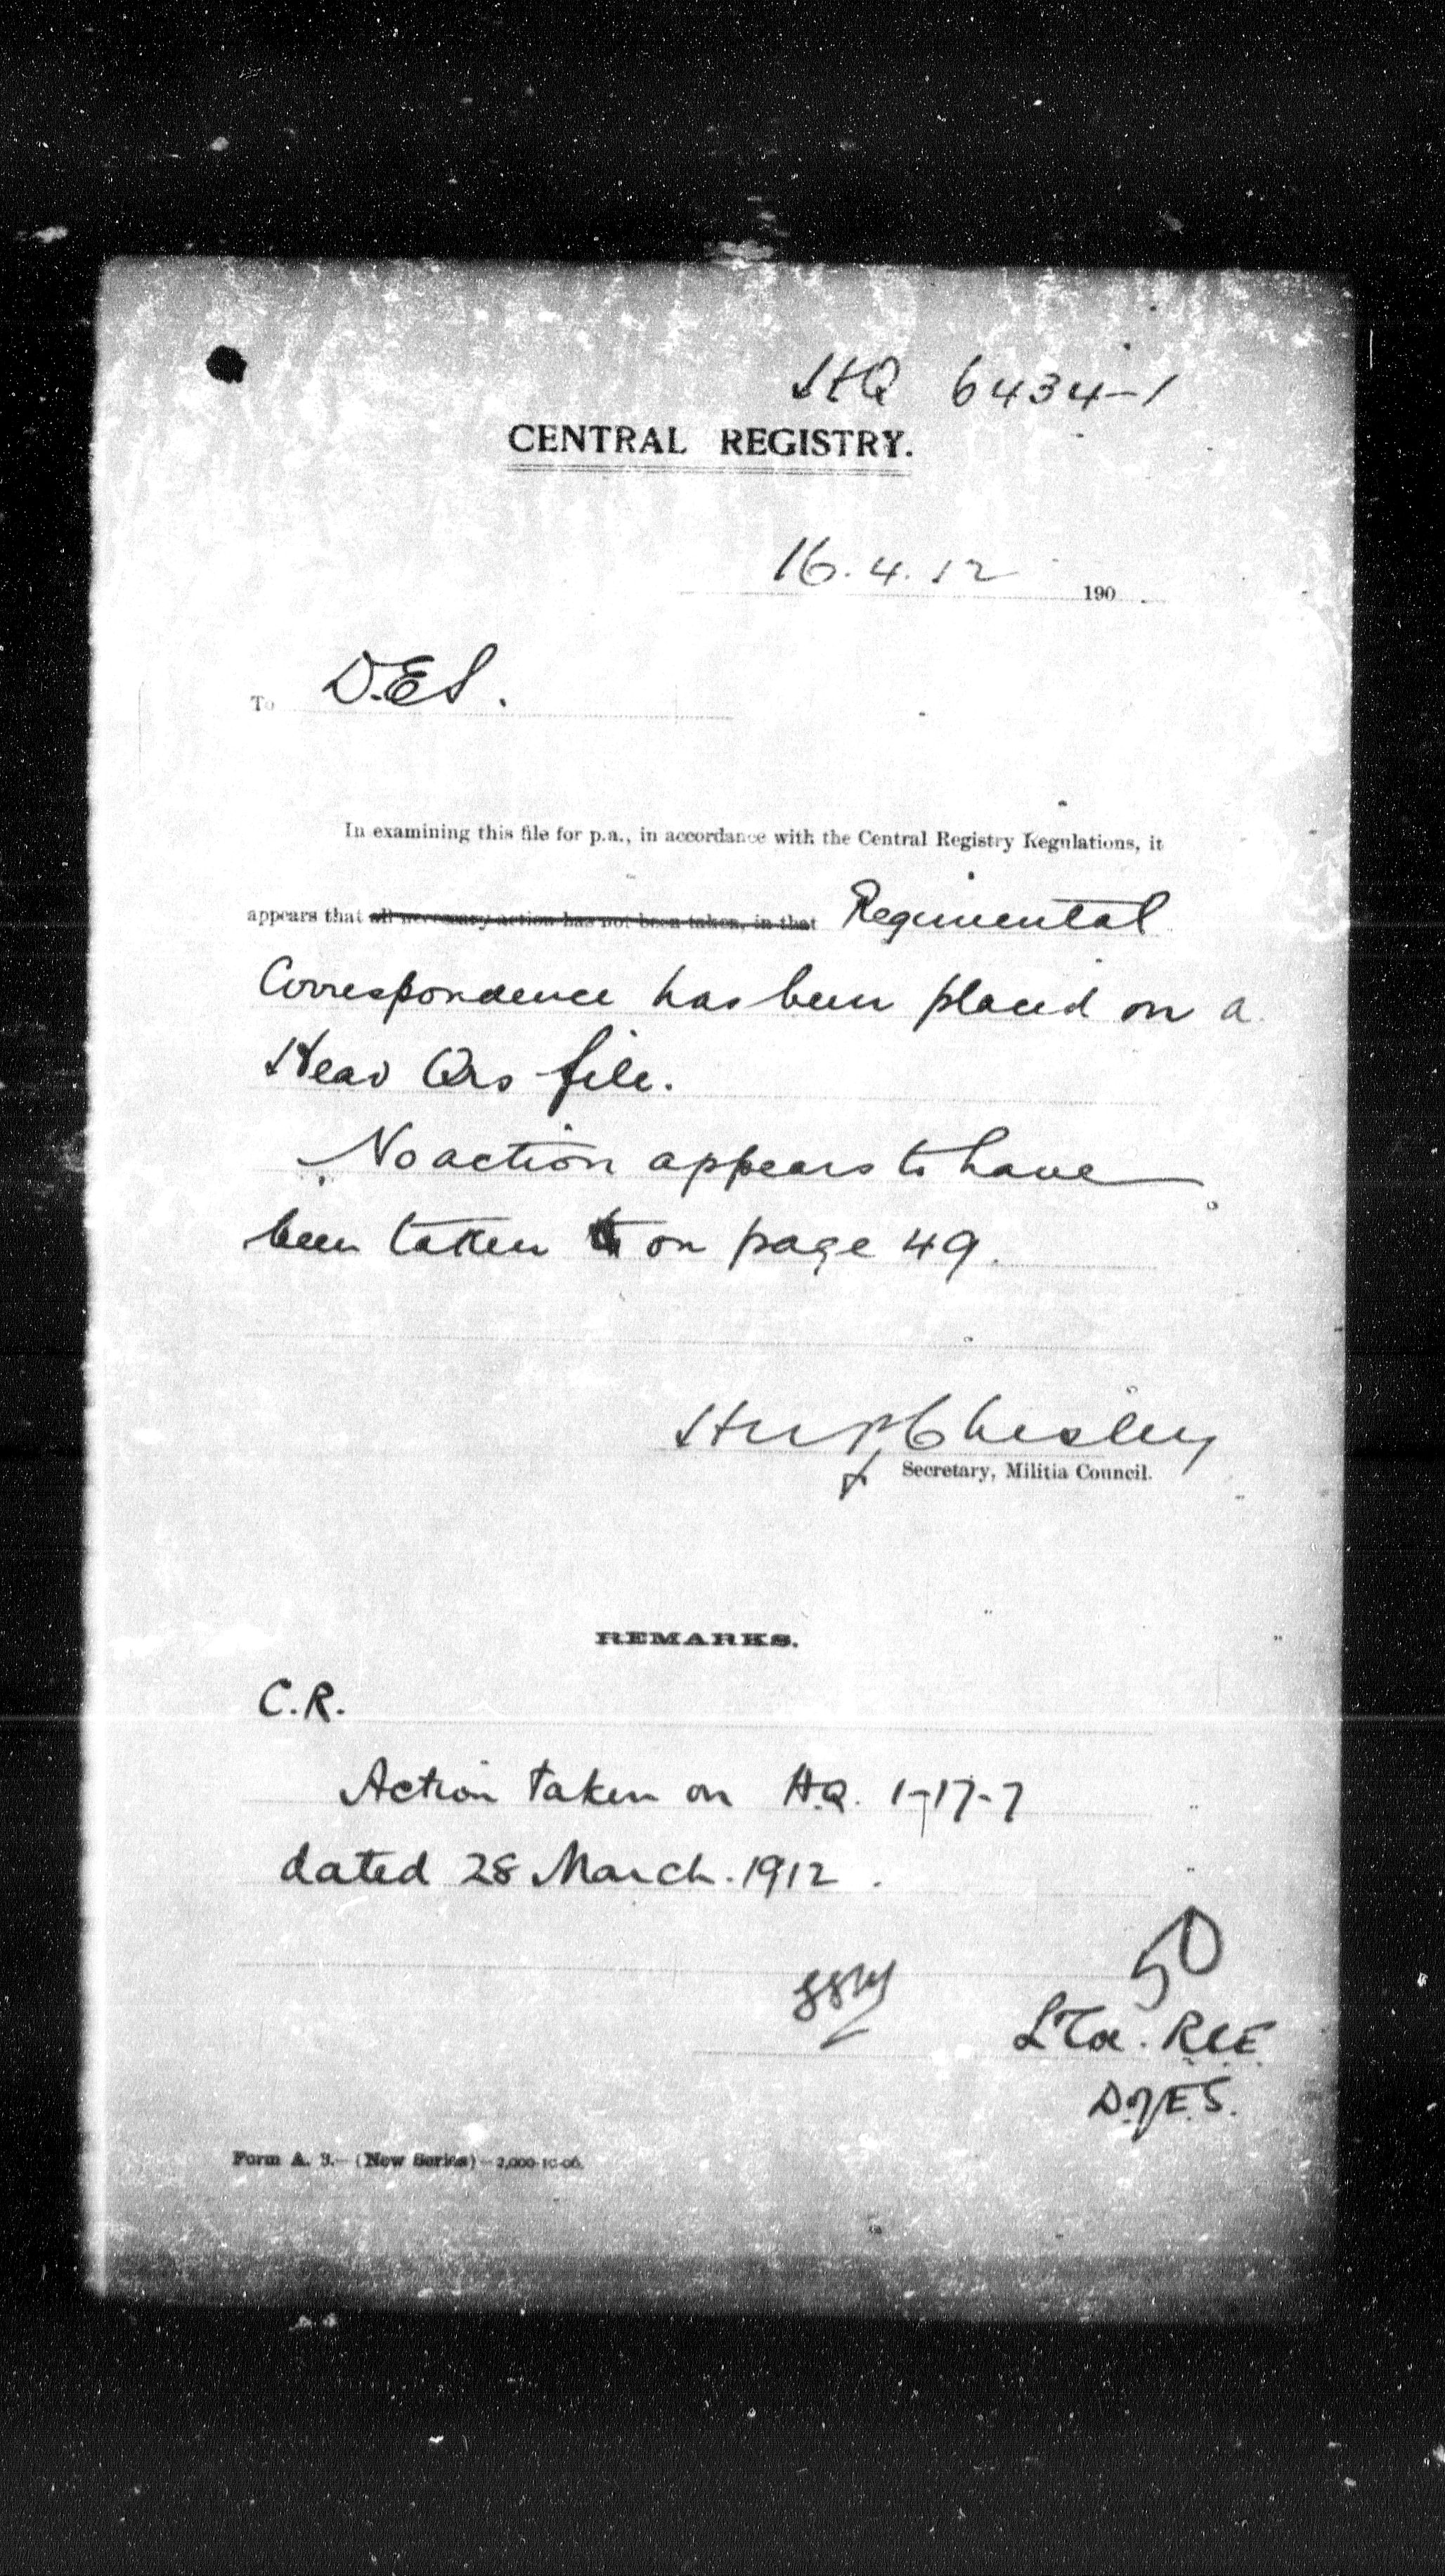 HQ 6434-1
CENTRAL REGISTRY.
16.4.12 190
To D.E.S.
In examining this file for p.a., in accordance with the Central Registry Regulations, it
appears that all necessary action has not been taken, in that Regimental
Correspondence has been placed on a
Head Qrs file.
No action appears to have
been taken on page 49.
Chesley
Secretary, Militia Council.
REMARKS.
C.R.
Action taken on H.Q. 1-17-7
dated 28 March. 1912.
50
RCE
D.of E.S.
Form A. 3.—(New Series)—2,000-10-06.